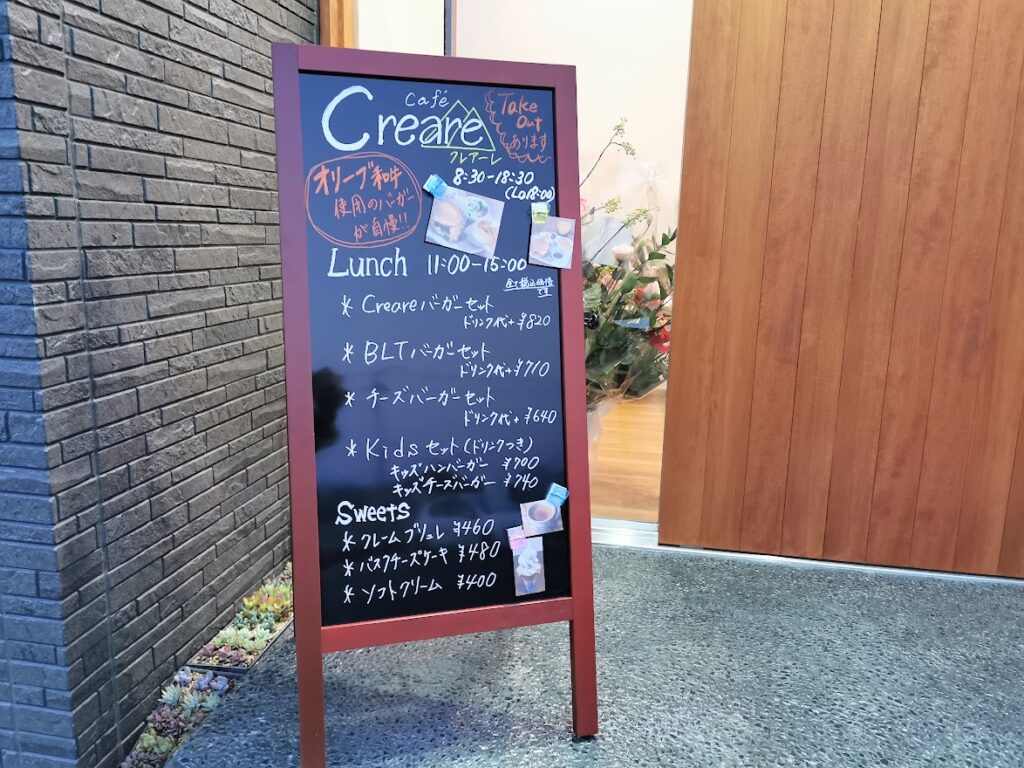 Café
Creare
クレアーレ
Take
Out
あります
8:30-18:30
(Lo18:00)
オリーブ和牛
使用のバーガー
が自慢!!
Lunch 11:00-15:00
全て税込価格
です
* Creareバーガーセット
ドリンク代+¥820
* BLTバーガーセット
ドリンク代+¥710
* チーズバーガーセット
ドリンク代+¥640
* Kidsセット(ドリンクつき)
キッズハンバーガー ¥700
キッズチーズバーガー ¥740
Sweets
* クレームブリュレ ¥460
* バスクチーズケーキ ¥480
* ソフトクリーム ¥400